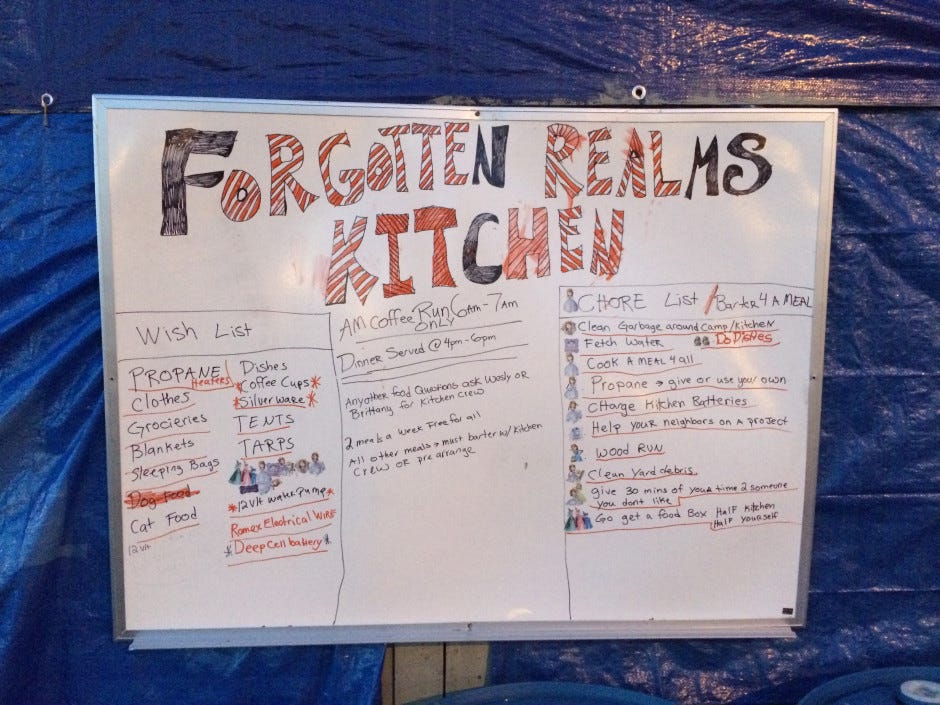 FORGOTTEN REALMS
KITCHEN
Wish List
PROPANE/
Heaters
Clothes
Grocieries
Blankets
Sleeping Bags
Dog Food
Cat Food
12 Vlt
Dishes
Coffee Cups*
*Silverware*
TENTS
TARPS
*12 Vlt water Pump*
Romex Electrical WIRE
*Deep Cell battery*
AM Coffee Run 6am-7am
ONLY
Dinner Served @ 4pm-6pm
Any other food Questions ask Wesly OR
Brittany for Kitchen Crew
2 meals a week Free for all
All other meals → must barter w/ Kitchen
Crew OR pre arrange
CHORE List / Barter 4 A MEAL
Clean Garbage around Camp/Kitchen
Fetch Water
Do Dishes
Cook A MEAL 4 all
Propane → give or use your own
CHarge Kitchen Batteries
Help YOUR neighbors on A project
WOOD RUN
Clean Yard debris
give 30 mins of your time 2 someone
you don't like
Go get a food Box Half Kitchen
Half Yourself